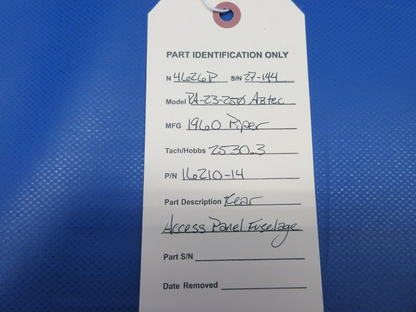 PART IDENTIFICATION ONLY
N 4626P S/N 27-144
Model PA-23-250 Aztec
MFG 1960 Piper
Tach/Hobbs 2530.3
P/N 16210-14
Part Description Rear
Access Panel Fuselage
Part S/N
Date Removed